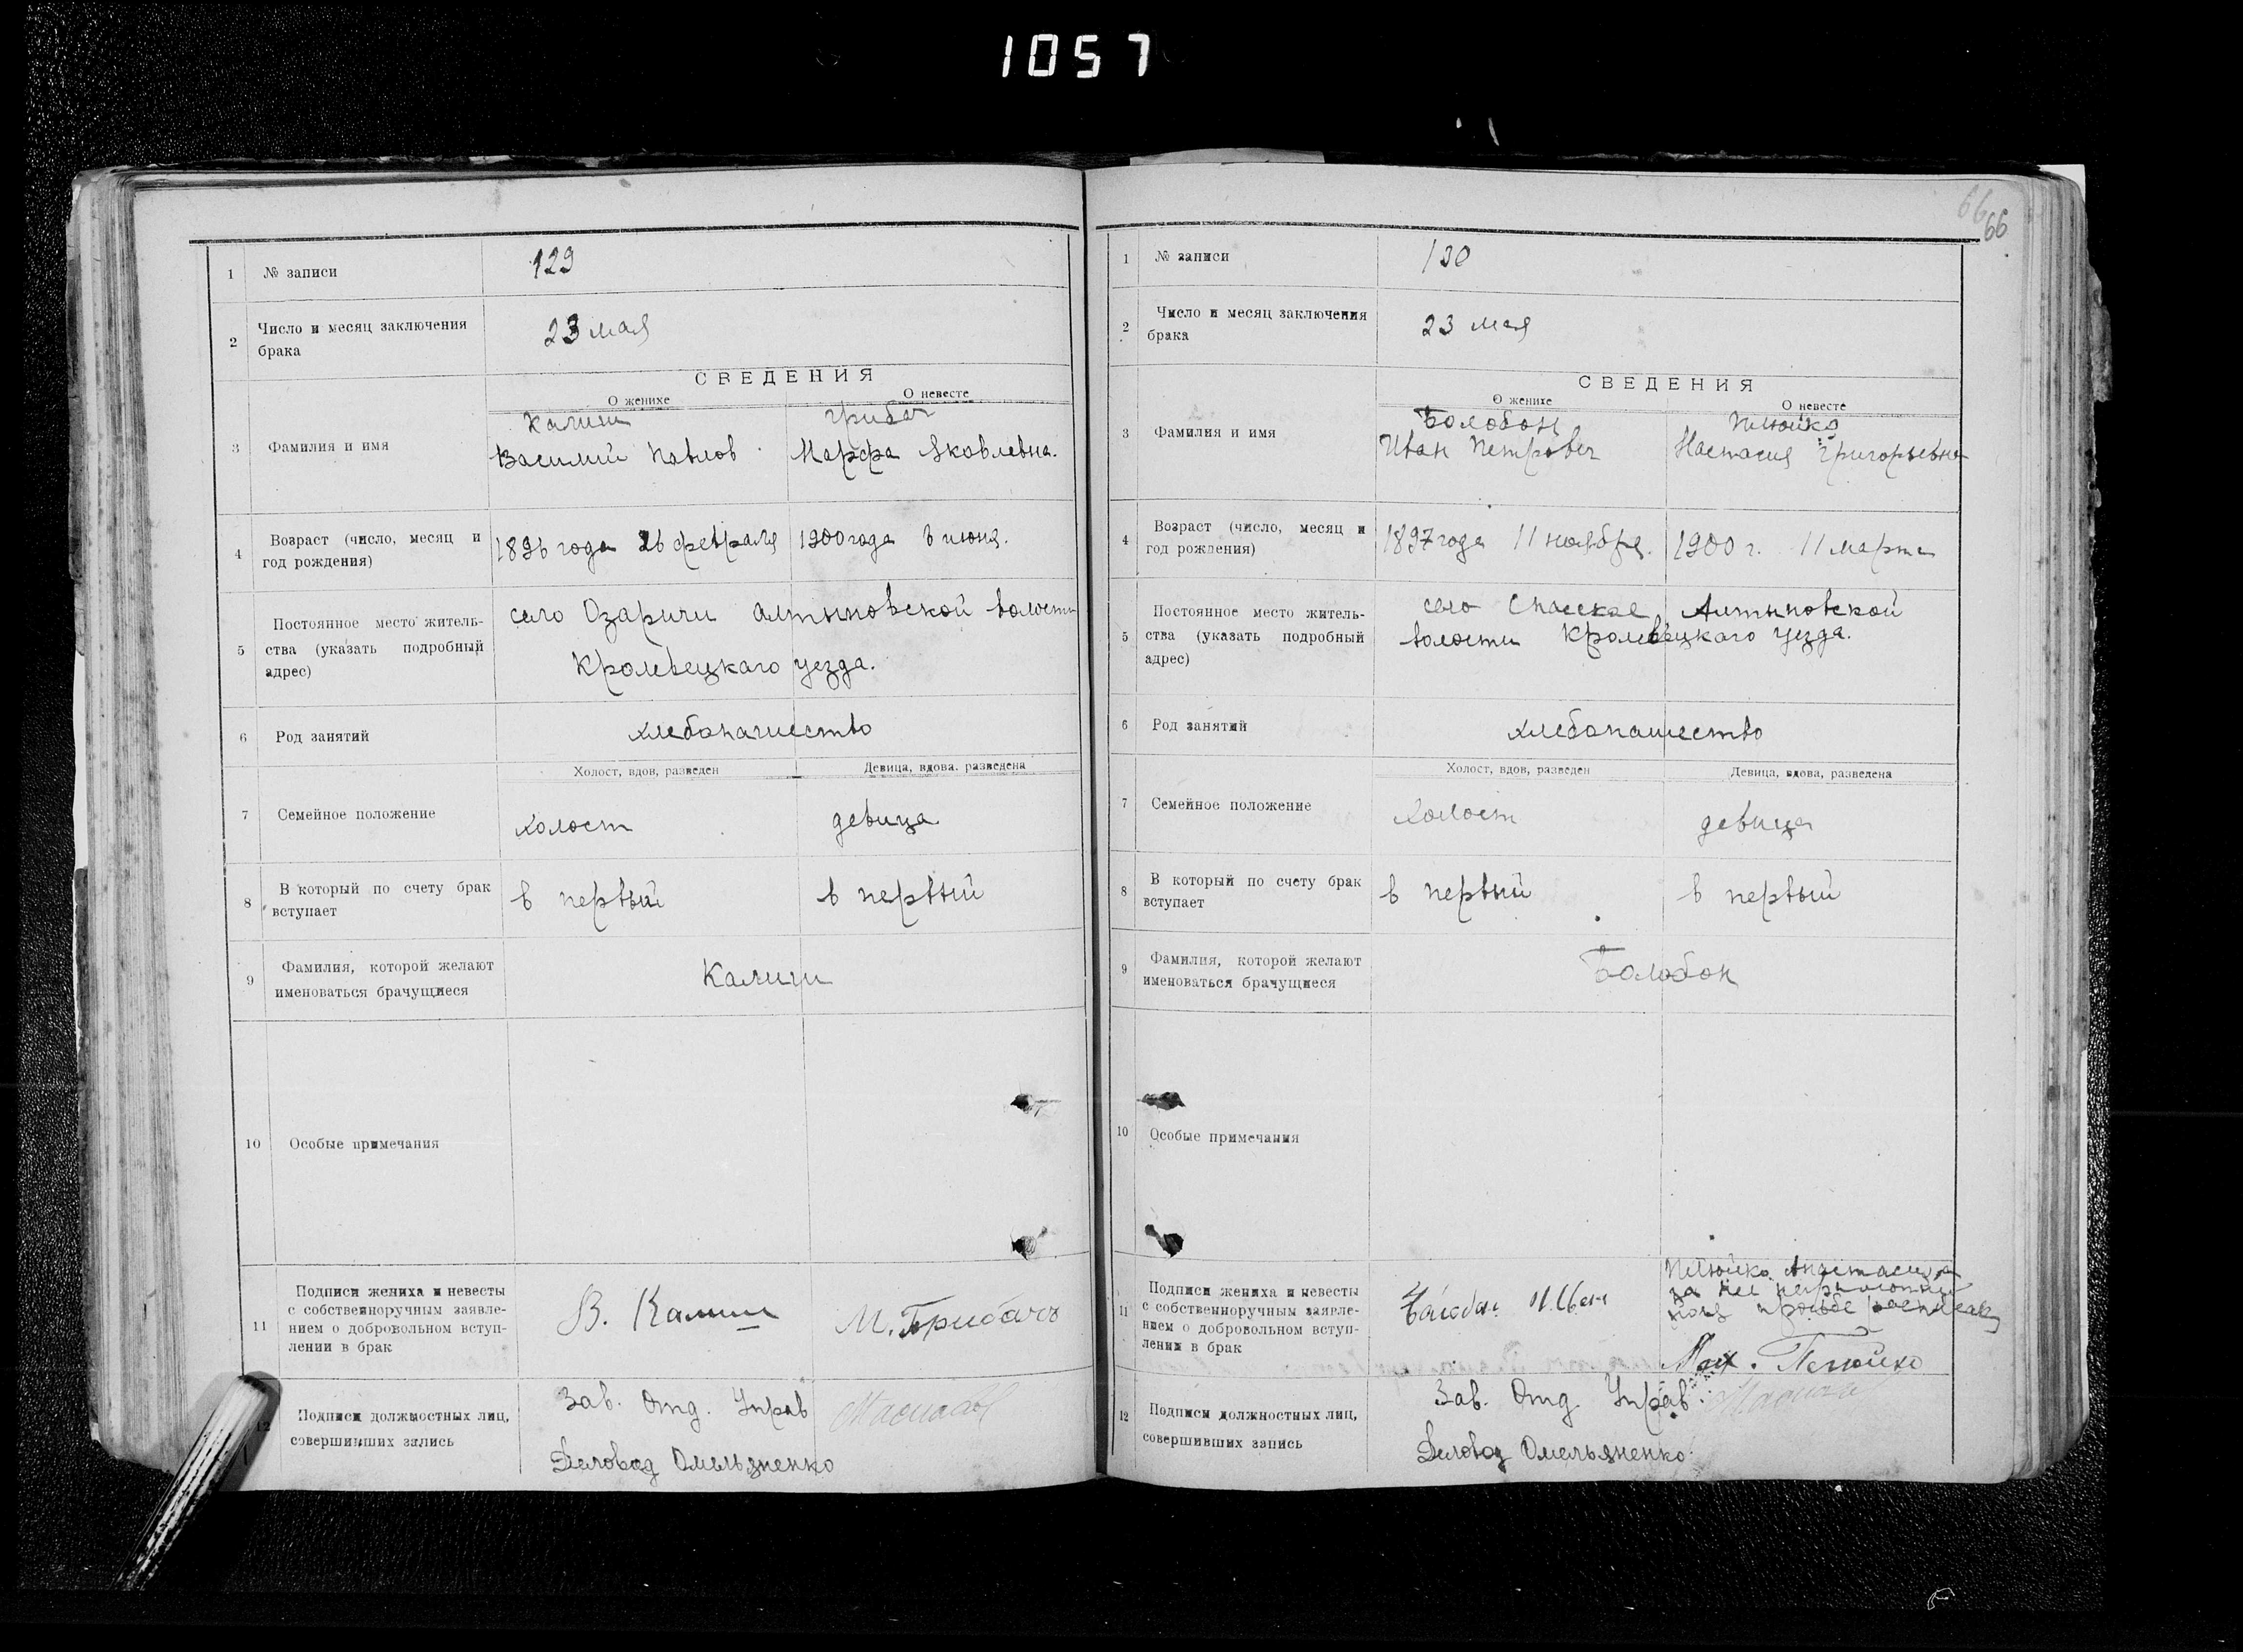 1057
1 № записи 129
2 Число и месяц заключения
брака
23 мая
СВЕДЕНИЯ
О женихе О невесте
3 Фамилия и имя
Калиш
Василий Павлов
Грибач
Марфа Яковлевна.
4 Возраст (число, месяц и
год рождения)
1896 года 26 февраля
1900 года 6 июня.
5 Постоянное место житель-
ства (указать подробный
адрес)
село Озаричи Алтыновской волости
Кролевецкого уезда.
6 Род занятий хлебопашество
Холост, вдов, разведен Девица, вдова. разведена
7 Семейное положение холост девица
8 В который по счету брак
вступает
в первый в первый
9 Фамилия, которой желают
именоваться брачущиеся
Калиш
10 Особые примечания
11 Подписи жениха и невесты
с собственноручным заявле-
нием о добровольном вступ-
лении в брак
В. Калиш М. Грибачь
12 Подписи должностных лиц,
совершивших запись
Зав. Отд. Управ
Деловод Омельяненко
66 66
1 № записи 130
2 Число и месяц заключения
брака
23 мая
СВЕДЕНИЯ
О женихе О невесте
3 Фамилия и имя
Болобон
Иван Петрович
Пилюйко
Настасия Григорьевна
4 Возраст (число, месяц и
год рождения)
1897 года 11 ноября.
1900 г. 11 марта
5 Постоянное место житель-
ства (указать подробный
адрес)
село Спасское Алтыновской
волости Кролевецкаго уезда.
6 Род занятий хлебопашество
Холост, вдов, разведен Девица, вдова, разведена
7 Семейное положение холост девица
8 В который по счету брак
вступает
в первый в первый
9 Фамилия, которой желают
именоваться брачущиеся
Болобон
10 Особые примечания
11 Подписи жениха и невесты
с собственноручным заявле-
нием о добровольном вступ-
лении в брак
Пилюйко Анастасия
за нее
просьбе
12 Подписи должностных лиц,
совершивших запись
Зав. Отд. Управ.
Деловод Омельяненко